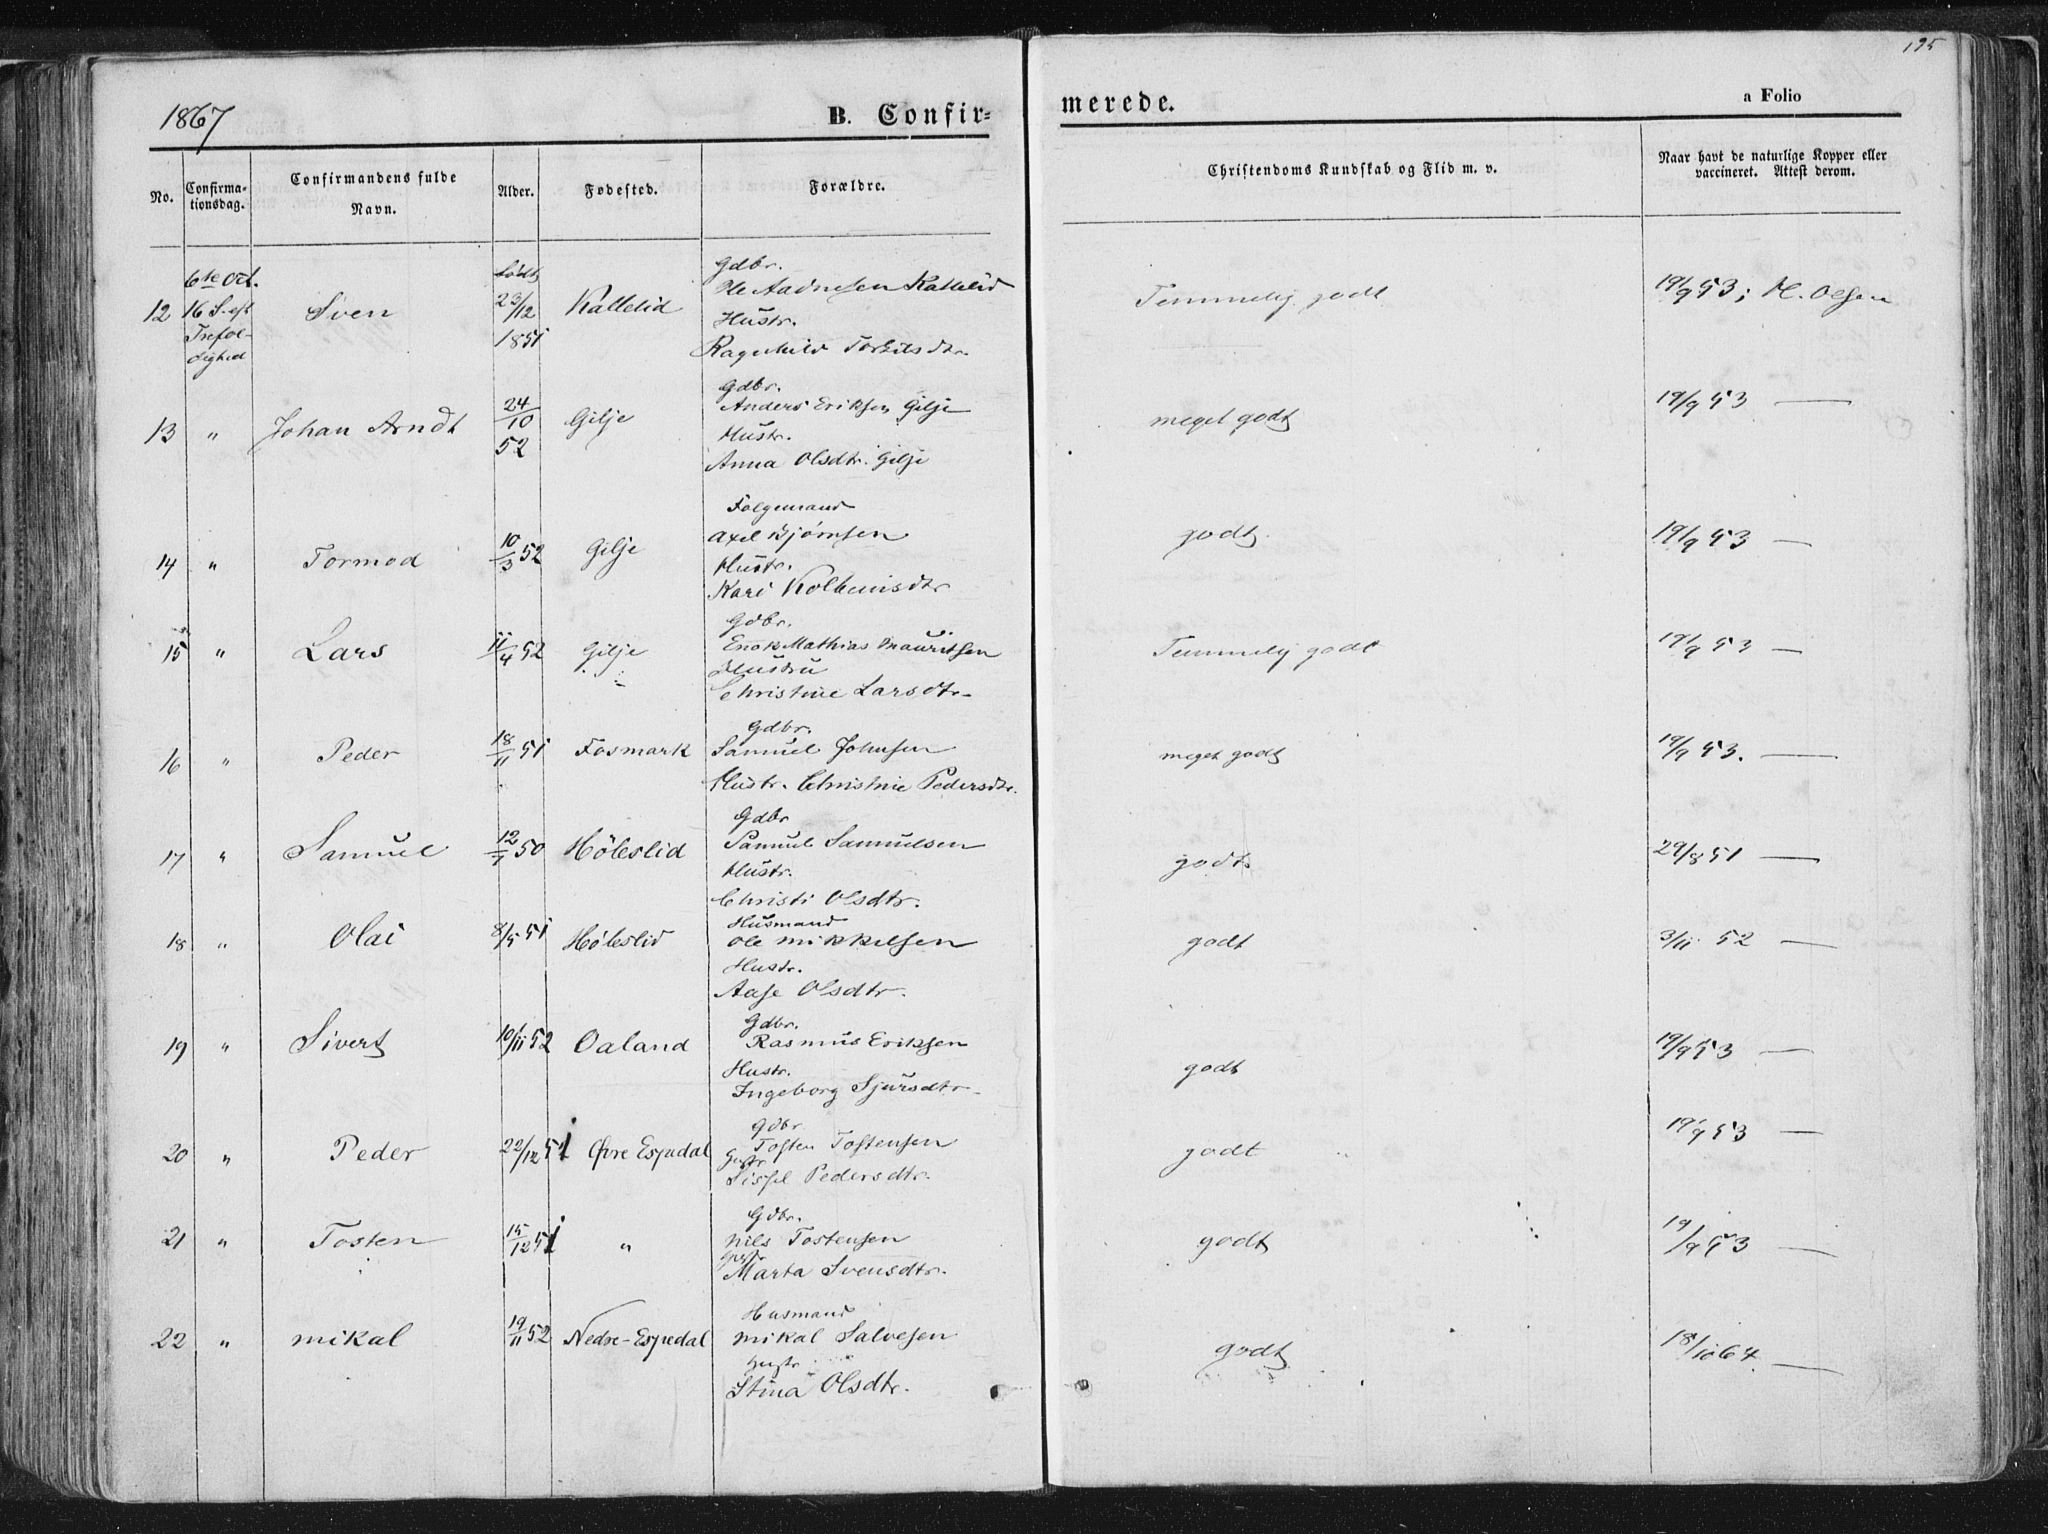 195
1867 B. Confir= merede. a Folio
No. Confirma-tionsdag. Confirmandens fulde Navn. Alder. Fødested. Forældre. Christendoms Kundskab og Flid m. v. Naar havt de naturlige Kopper eller vaccineret. Attest derom.
12 6te Oct. 16 S. eft Trefol-dighed Sven født 23/12 1851 Kallelid Gdbr. Ole Aadnesen Kallelid Hustr. Ragnhild Torkilsdtr. Temmelig godt 19/9 53; M. Olsen
13 " Johan Arndt 24/10 52 Gilje Gdbr. Anders Eriksen Gilje Hustr. Anna Olsdtr. Gilje meget godt 19/9 53 —
14 " Tormod 10/3 52 Gilje Følgemand Axel Bjørnsen Hustr. Kari Kolbeinsdtr godt 19/9 53 —
15 " Lars 11/4 52 Gilje Gdbr. Enok Mathias Mauritsen Hustru Christine Larsdtr. Temmelig godt 19/9 53 —
16 " Peder 18/11 51 Fosmark Gdbr. Samuel Johnsen Hustr. Christine Pedersdtr. meget godt 19/9 53. —
17 " Samuel 12/7 50 Høleslid Gdbr Samuel Samuelsen Hustr. Christi Olsdtr. godt 29/8 51 —
18 " Olai 8/5 51 Høleslid Husmand Ole Mikkelsen Hustr. Aase Olsdtr. godt 3/11 52 —
19 " Sivert 10/11 52 Oaland Gdbr. Rasmus Eriksen Hustr. Ingeborg Sjursdtr. godt 19/9 53 —
20 " Peder 22/12 51 Øvre Espedal Gdbr Tosten Tostensen Hustr Sissel Pedersdtr. godt 19/9 53 —
21 " Tosten 15/12 51 " Gdbr. Nils Tostensen Hustr Marta Svensdtr. godt 19/9 53 —
22 " Mikal 19/11 52 Nedre-Espedal Husmand Mikal Salvesen Hustr Stina Olsdtr. godt 18/10 64. —